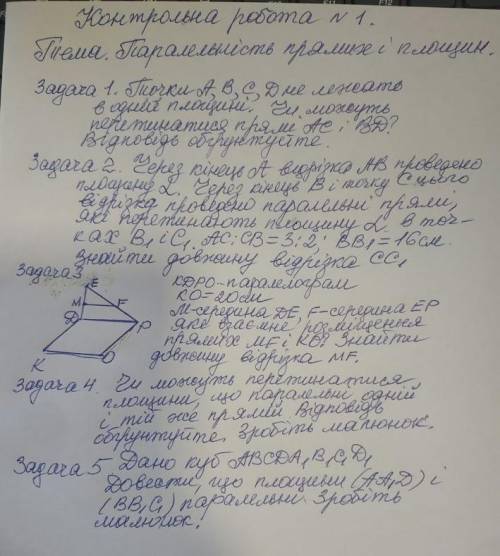 Контрольна робота № 1.
Тема. Паралельність прямих і площин.
Задача 1. Точки A, B, C, D не лежать
в одній площині. Чи можуть
перетинатися прямі AC і BD?
Відповідь обґрунтуйте.
Задача 2. Через кінець A відрізка AB проведено
площину α. Через кінець B і точку C цього
відрізка проведено паралельні прямі,
які перетинають площину α в точ-
ках B₁ і C₁. AC:CB=3:2; BB₁=16см.
Знайти довжину відрізка CC₁
Задача 3
E
M
F
D
P
K
O
KDPO-паралелограм
KO=20см
M-середина DE, F-середина EP
яке взаємне розміщення
прямих MF і KO? Знайти
довжину відрізка MF.
Задача 4. Чи можуть перетинатися
площини, що паралельні одній
і тій же прямій. Відповідь
обґрунтуйте. Зробіть малюнок.
Задача 5. Дано куб ABCDA₁B₁C₁D₁
Довести, що площини (AA₁D) і
(BB₁C₁) паралельні. Зробіть
малюнок!